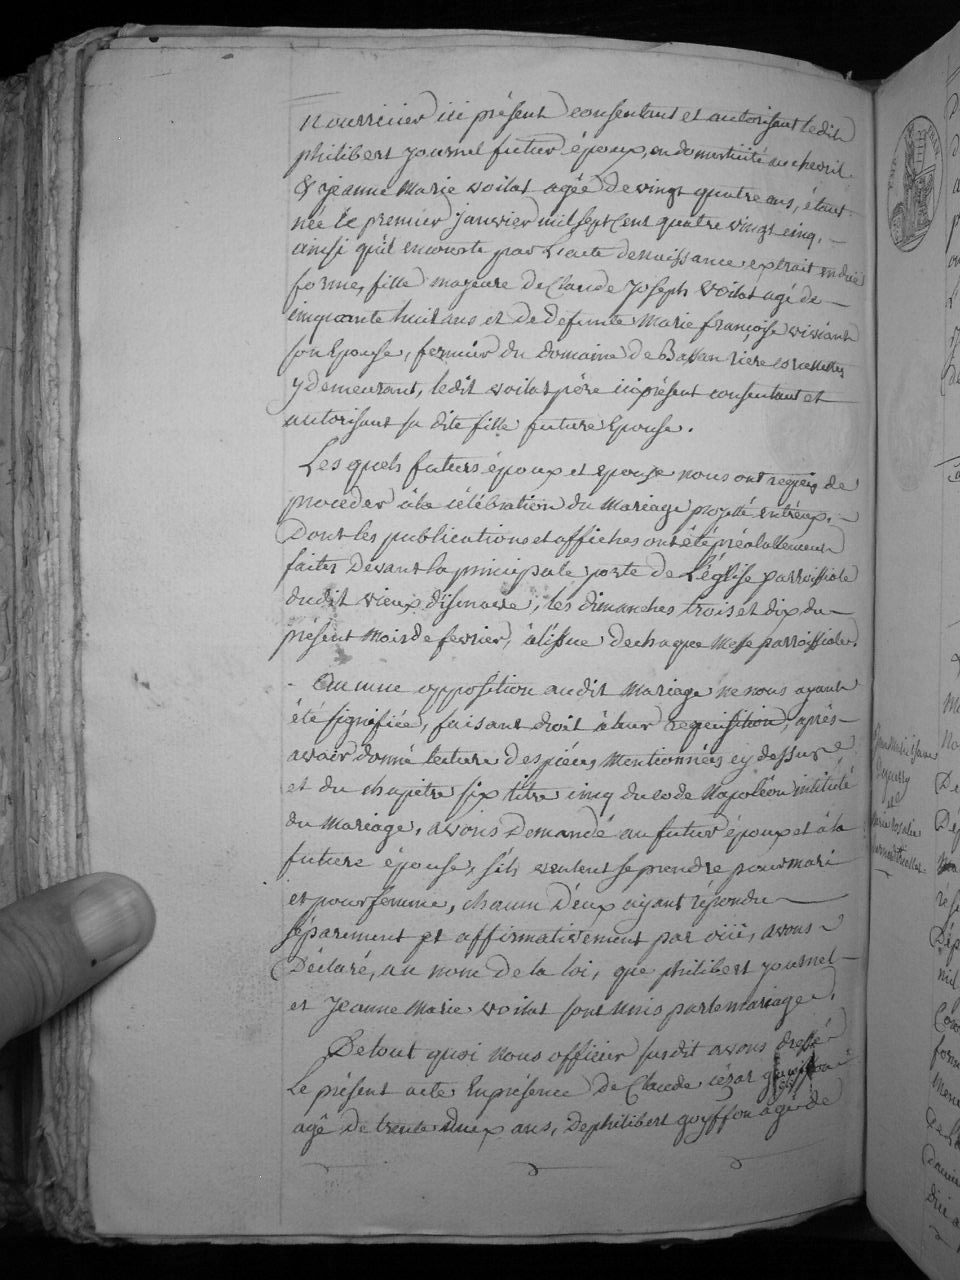 nourricier ici présent consentant et autorisant ledit
philibert journel futur époux, en domesticité au chevril
& jeanne Marie voilat agée de vingt quatre ans, étant
née le premier janvier mil sept Cent quatre vingt cinq,
ainsi qu'il en conste par L'acte de naissance extrait en due
forme, fille majeure de Claude Joseph Voilat agé de
cinquante huit ans et de defunte Marie françoise viviant
son Epouse, fermier du domaine de
y demeurant, ledit voilat père ici présent consentant et
autorisant sa dite fille future Epouse.
Les quels futurs époux et epouse nous ont requis de
proceder à la célébration du Mariage projetté entr'eux,
Dont les publications et affiches ont été préalablement
faites Devant la principale porte de L'église parroissiale
dudit vieux d'isenave, les dimanches trois et dix du
présent Mois de fevrier, à l'issue de chaque Messe parroissiale.
Aucune opposition audit Mariage ne nous ayant
été signifiée, faisant droit à leur requisition, après
avoir donné lecture des pièces Mentionnées cy dessus
et du chapitre six titre cinq du code Napoléon intitulé
du Mariage, avons Demandé au futur époux et à la
future épouse, s'ils veulent se prendre pour mari
et pour femme, chacun D'eux ayant répondu
séparement et affirmativement par oüi, avons
Déclaré, au nom de la loi, que philibert journel
et Jeanne Marie voilat sont Unis par le mariage.
De tout quoi nous officier susdit avons dressé
Le présent acte En présence de Claude cézar
agé de trente deux ans, de philibert goyffon agé de